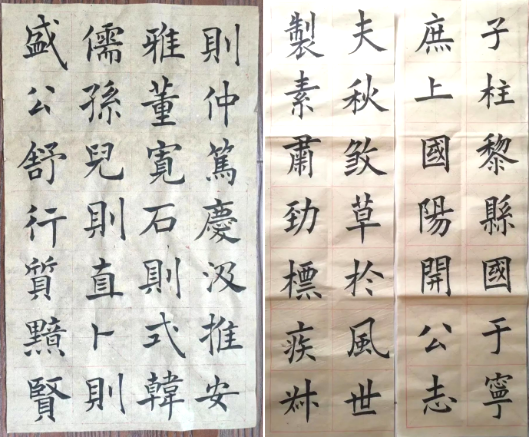 子柱黎縣國于寧
庶上國陽開公志
夫秋草於風世
製素肅勁標疾
則仲篤慶汲推安
雅董寬石則式韓
儒孫兒則直卜則
盛公舒行質黯賢